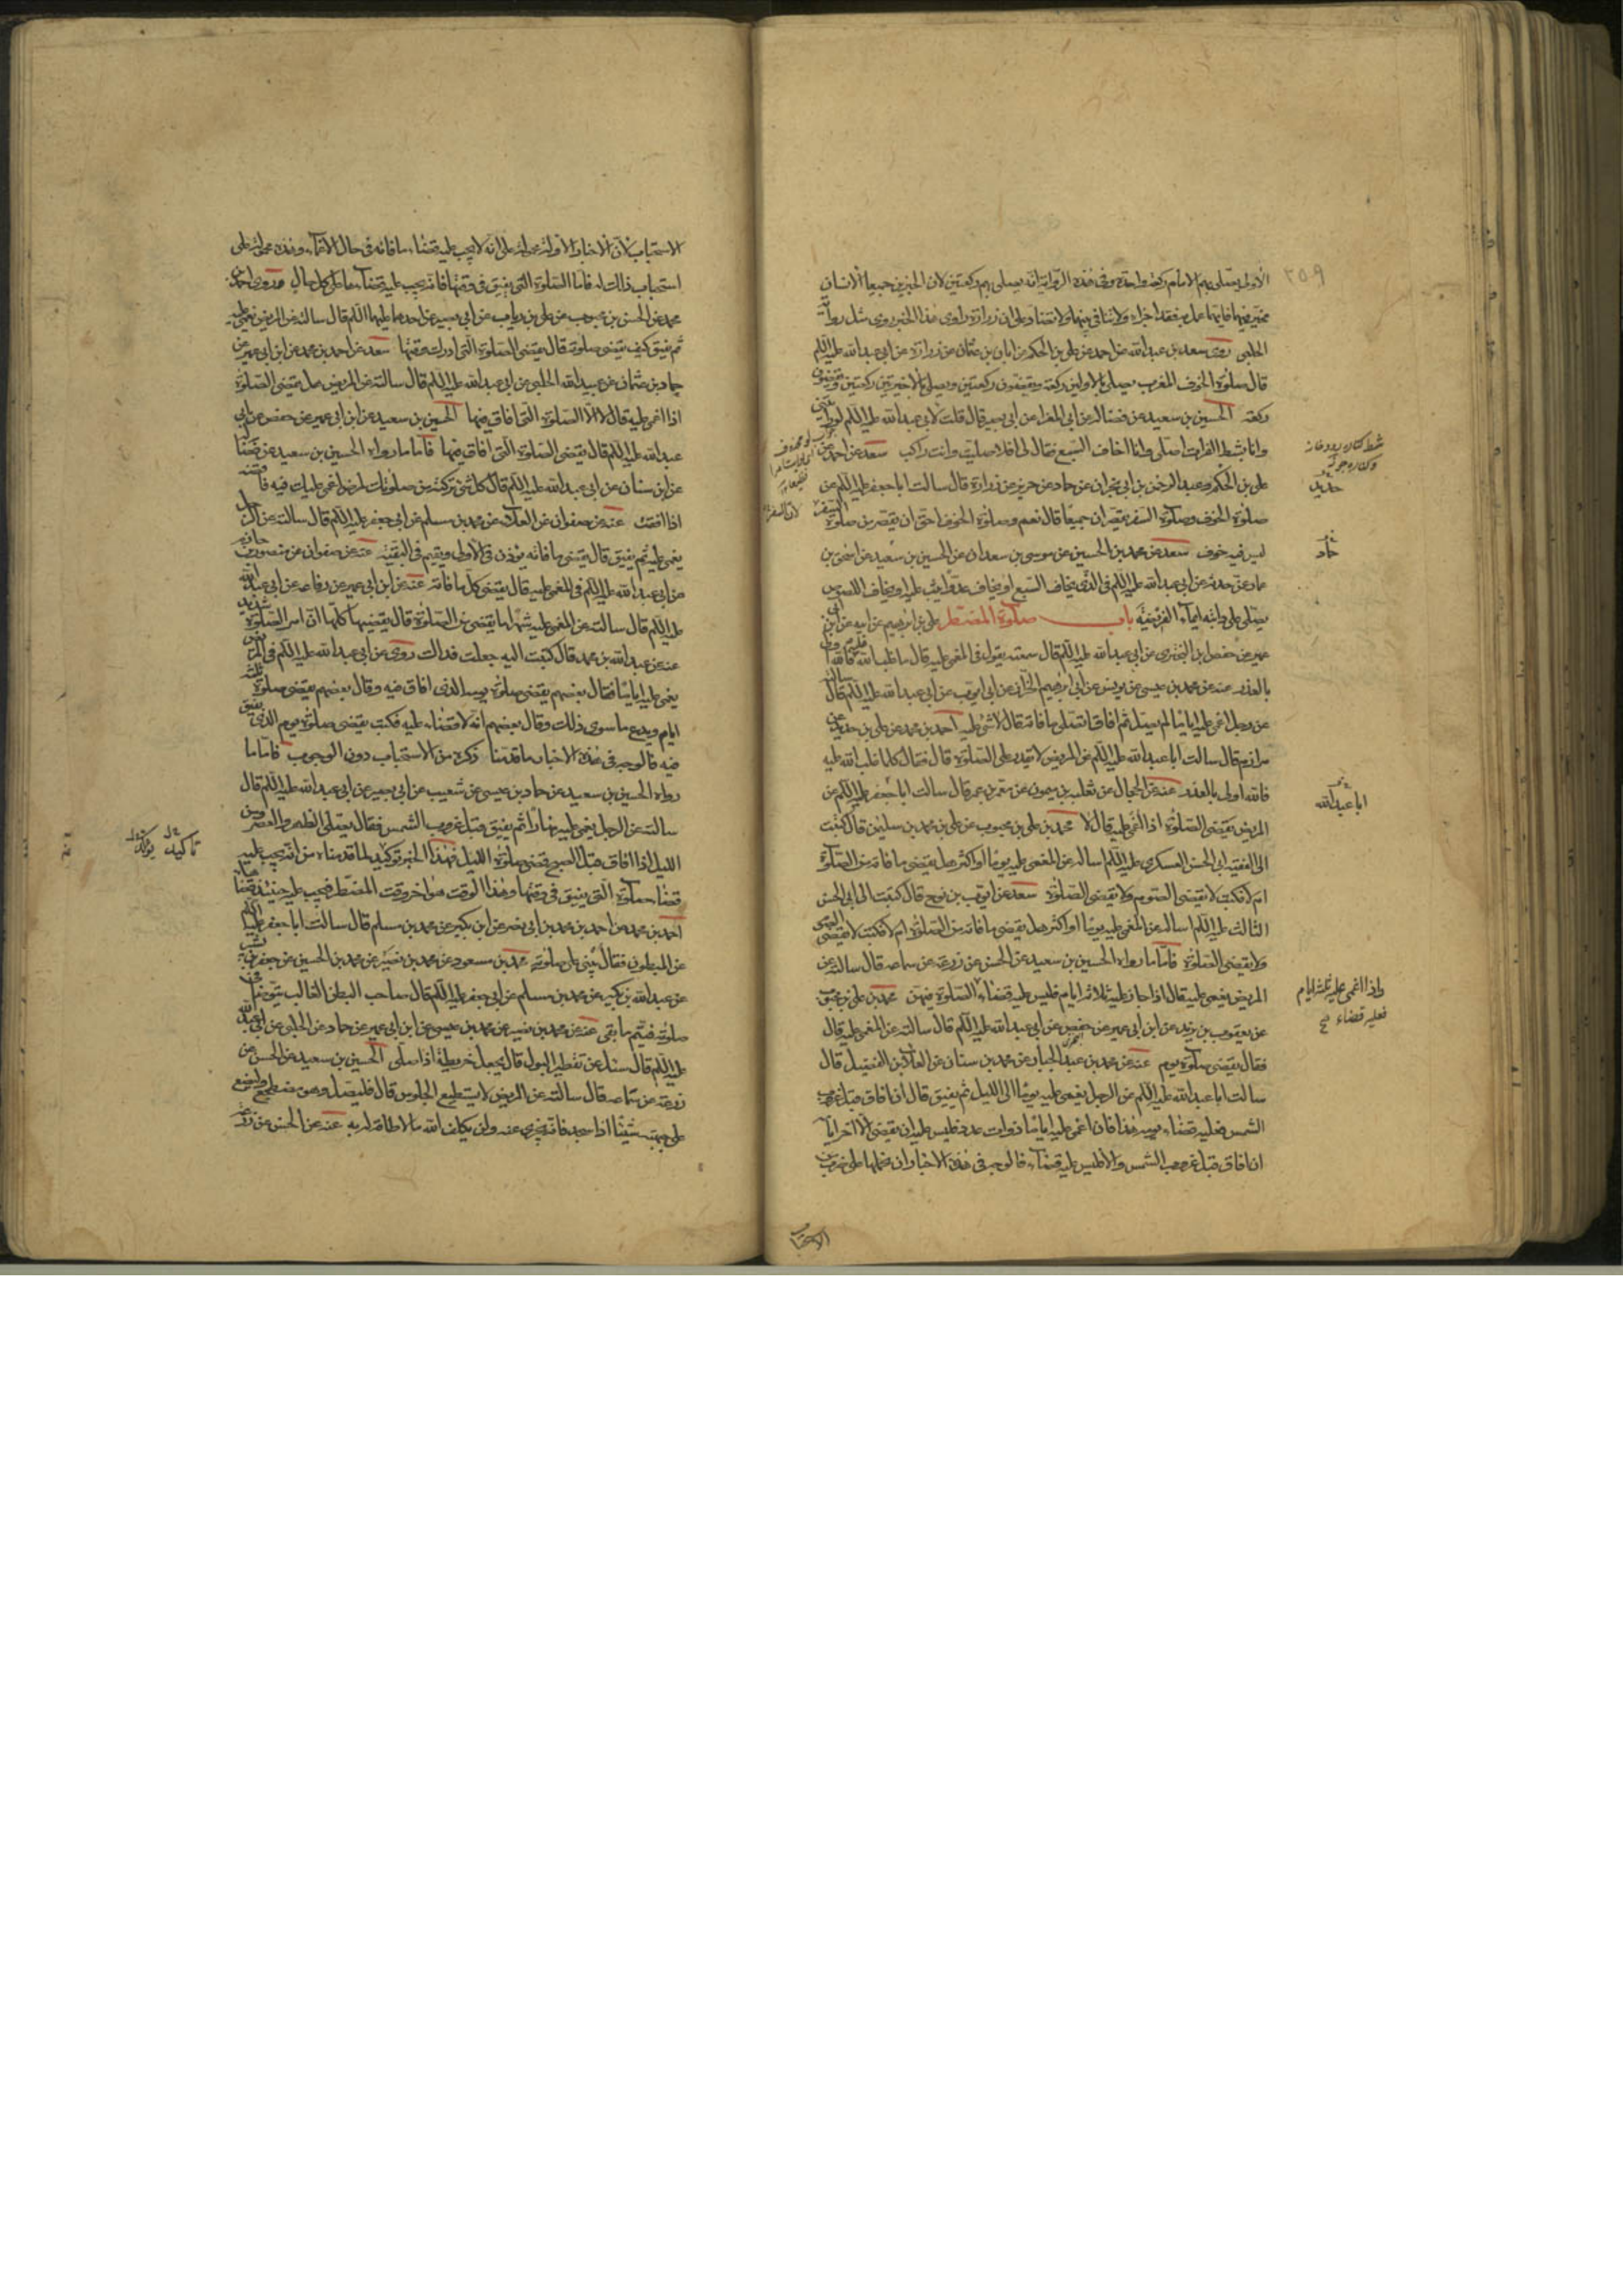 الأولى يصلي بهم الامام ركعة واحدة وفي هذه الرواية انه يصلي بهم ركعتين لان الخبرين جميعا الانسان
مخير فيهما فايهما عمل به فقد اجزاه ولا تنافي بينهما ولا تضاد على ان زرارة راوي هذا الخبر روى مثل رواية
الحلبي روى سعد بن عبدالله عن احمد عن علي بن الحكم عن ابان بن عثمان عن زرارة عن ابي عبدالله عليه السلم
قال صلوة الخوف المغرب يصلي بالاولين ركعة ويقضون ركعتين ويصلي بالاخرين ركعتين ويقضون
ركعة الحسين بن سعيد عن فضالة عن ابي المغرا عن ابي بصير قال قلت لابي عبدالله عليه السلم لو رأيتني
وانا بشط الفرات اصلي وانا اخاف السبع فقال لي افلا صليت وانت راكب سعد عن احمد عن
علي بن الحكم وعبد الرحمن بن ابي نجران عن حماد عن حريز عن زرارة قال سالت ابا جعفر عليه السلم عن
صلوة الخوف وصلوة السفر تقصران جميعا قال نعم وصلوة الخوف احق ان تقصر من صلوة السفر
ليس فيه خوف سعد عن محمد بن الحسين عن موسى بن سعدان عن الحسين بن سعيد عن اسحق بن
عماد عن حدثه عن ابي عبدالله عليه السلم في الذي يخاف السبع او يخاف عدوا يثب عليه او يخاف اللصوص
يصلي على دابته ايماء الفريضة باب صلوة المضطر علي بن ابرهيم عن ابيه عن ابن ابي
عمير عن حفص ابن البختري عن ابي عبدالله عليه السلم قال سمعته يقول في المغمى عليه قال ما غلب الله عليه فالله اولى
بالعذر عنه عن محمد بن عيسى عن يونس عن ابي ابرهيم الخزاز عن ابي ايوب عن ابي عبدالله عليه السلم قال سالته
عن رجل اغمي عليه اياما لم يصل ثم افاق ايصلي ما فاته قال لا شئ عليه احمد بن محمد عن علي بن حديد عن
مرازم قال سالت ابا عبدالله عليه السلم عن المريض لا يقدر على الصلوة قال فقال كلما غلب الله عليه
فالله اولى بالعذر عنه عن الحجال عن ثعلبة بن ميمون عن معمر بن عمر قال سالت ابا جعفر عليه السلم عن
المريض يقضي الصلوة اذا اغمي عليه قال لا محمد بن علي بن محبوب عن علي بن محمد بن سليمن قال كتبت
الى الفقيه ابي الحسن العسكري عليه السلم اساله عن المغمى عليه يوما او اكثر هل يقضي ما فاته من الصلوة
ام لا فكتب لا يقضي الصوم ولا يقضي الصلوة سعد عن ايوب بن نوح قال كتبت الى ابي الحسن
الثالث عليه السلم اساله عن المغمى عليه يوما او اكثر هل يقضي ما فاته من الصلوة ام لا فكتب لا يقضي الصوم
ولا يقضي الصلوة فاما ما رواه الحسين بن سعيد عن الحسن عن زرعة عن سماعة قال سالته عن
المريض يغمى عليه قال اذا جاز عليه ثلاثة ايام فليس عليه قضاء الصلوة فيهن محمد بن علي بن محبوب
عن يعقوب بن يزيد عن ابن ابي عمير عن حفص عن ابي عبدالله عليه السلم قال سالته عن المغمى عليه قال
فقال يقضي صلوة يوم عنه عن محمد بن عبد الجبار عن محمد بن سنان عن العلا بن الفضيل قال
سالت ابا عبدالله عليه السلم عن الرجل يغمى عليه يوما الى الليل ثم يفيق قال ان افاق قبل غروب
الشمس فعليه قضاء يومه هذا فان اغمي عليه اياما ذوات عدد فليس عليه ان يقضي الا آخر ايامه
ان افاق قبل غروب الشمس والا فليس عليه قضاء فالوجه في هذه الاخبار ان نحملها على ضرب من
الاستحباب
٣٥٩
شط كناره رودخانه
حديد
حماد
ابا عبدالله
واذا اغمي عليه ثلثة ايام
فعليه قضاء
الاستحباب لان الاخبار الاولة محمولة على انه لا يجب عليه قضاء ما فاته في حال الاغماء وهذه محمولة على
استحباب ذلك له فاما الصلوة التي يفيق في وقتها فانه يجب عليه قضاءها على كل حال وروى احمد بن
محمد عن الحسن بن محبوب عن علي بن رياب عن ابي بصير عن احدهما عليهما السلم قال سالته عن المريض يغمى عليه
ثم يفيق كيف يقضي صلوته قال يقضي الصلوة التي ادرك وقتها سعد عن احمد بن محمد عن ابن ابي عمير عن
حماد بن عثمان عن عبيد الله الحلبي عن ابي عبدالله عليه السلم قال سالته عن المريض هل يقضي الصلوة
اذا اغمي عليه قال لا الا الصلوة التي افاق فيها الحسين بن سعيد عن ابن ابي عمير عن حفص عن ابي
عبدالله عليه السلم قال يقضي الصلوة التي افاق فيها فاما ما رواه الحسين بن سعيد عن فضالة
عن ابن سنان عن ابي عبدالله عليه السلم قال كل شئ تركته من صلوتك لمرض اغمي عليك فيه فاقضه
اذا افقت عنه عن صفوان عن العلا عن محمد بن مسلم عن ابي جعفر عليه السلم قال سالته عن الرجل
يغمى عليه ثم يفيق قال يقضي ما فاته يؤذن في الاولى ويقيم في البقية عنه عن صفوان عن منصور بن حازم
عن ابي عبدالله عليه السلم في المغمى عليه قال يقضي كل ما فاته عنه عن ابن ابي عمير عن رفاعة عن ابي عبدالله
عليه السلم قال سالته عن المغمى عليه شهرا ما يقضي من الصلوة قال يقضيها كلها ان امر الصلوة شديد
عنه عن عبدالله بن محمد قال كتبت اليه جعلت فداك روى عن ابي عبدالله عليه السلم في المريض
يغمى عليه اياما فقال بعضهم يقضي صلوة يومه الذي افاق فيه وقال بعضهم يقضي صلوة ثلثة
ايام ويدع ما سوى ذلك وقال بعضهم انه لا قضاء عليه فكتب يقضي صلوة يوم الذي يفيق
فيه فالوجه في هذه الاخبار ما قدمنا ذكره من الاستحباب دون الوجوب فاما ما
رواه الحسين بن سعيد عن حماد بن عيسى عن شعيب عن ابي بصير عن ابي عبدالله عليه السلم قال
سالته عن الرجل يغمى عليه نهارا ثم يفيق قبل غروب الشمس فقال يصلي الظهر والعصر ومن
الليل اذا افاق قبل الصبح قضى صلوة الليل فهذا الخبر توكيد لما قدمناه من انه يجب عليه
قضاء صلوة التي يفيق في وقتها وهذا الوقت هو اخر وقت المضطر فيجب عليه حينئذ قضاها
احمد بن محمد عن احمد بن محمد بن ابي نصر عن ابن بكير عن محمد بن مسلم قال سالت ابا جعفر عليه السلم
عن المبطون فقال يبني على صلوته محمد بن مسعود عن محمد بن نصير عن محمد بن الحسين عن جعفر بن بشير
عن عبدالله بن بكير عن محمد بن مسلم عن ابي جعفر عليه السلم قال صاحب البطن الغالب يتوضأ
صلوته فيتم ما بقي عنه عن محمد بن نصير عن محمد بن عيسى عن ابن ابي عمير عن حماد عن الحلبي عن ابي عبدالله
عليه السلم قال سئل عن تقطير البول قال يجعل خريطة اذا صلى الحسين بن سعيد عن الحسن عن
زرعة عن سماعة قال سالته عن المريض لا يستطيع الجلوس قال فليصل وهو مضطجع وليضع
على جبهته شيئا اذا سجد فانه يجزي عنه ولن يكلف الله ما لا طاقة له به عنه عن الحسن عن زرعة
تاكيد